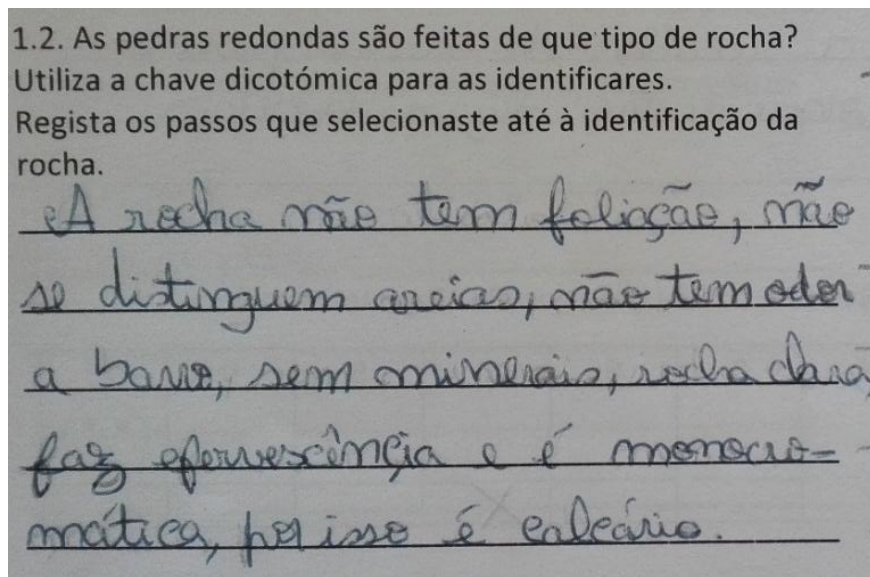 1.2. As pedras redondas são feitas de que tipo de rocha?
Utiliza a chave dicotómica para as identificares.
Regista os passos que selecionaste até à identificação da
rocha.
A rocha não tem foliação, não
se distinguem areias, não tem odor
a barro, sem minerais, rocha clara,
faz efervescência e é monocro-
mática, por isso é calcário.